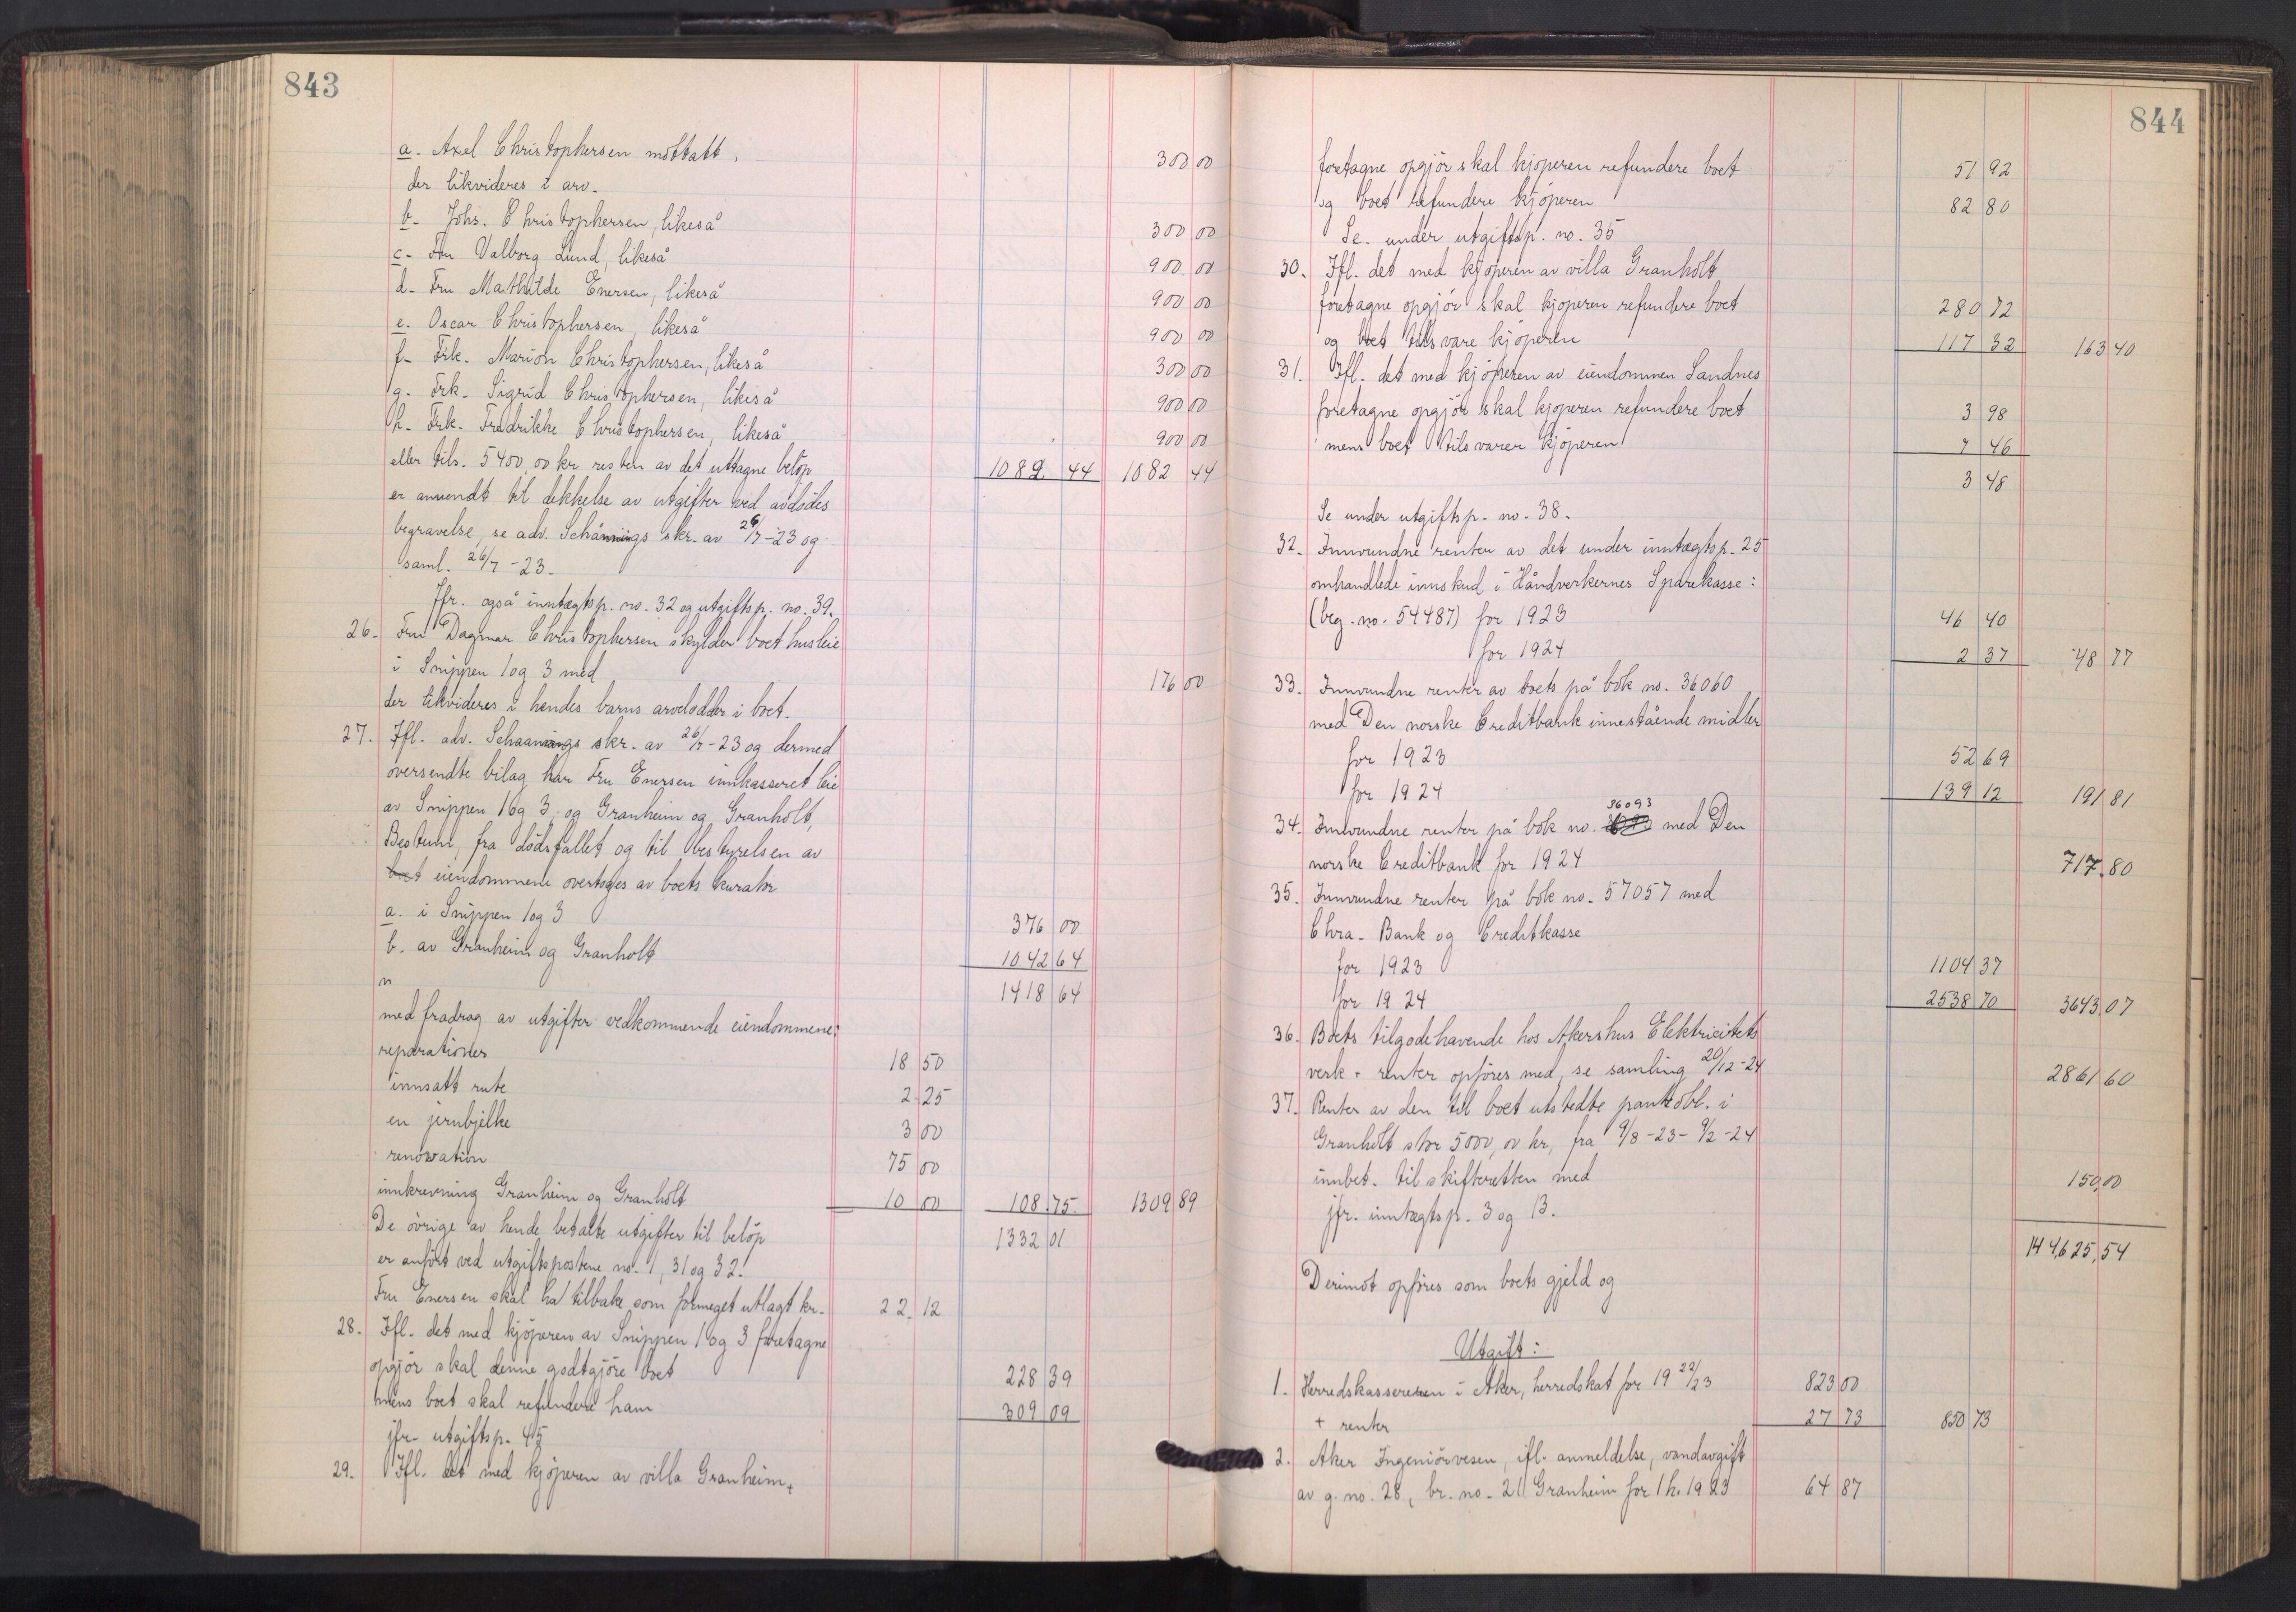 843
a. Axel Christophersen mottatt, 300 00
der likvideres i arv.
b. Johs. Christophersen, likeså 300 00
c. Fru Valborg Lund, likeså 900 00
d. Fru Mathilde Enersen, likeså 900 00
e. Oscar Christophersen, likeså 900 00
f. Frk. Marion Christophersen, likeså 300 00
g. Frk. Sigrid Christophersen, likeså 900 00
h. Frk. Fredrikke Christophersen, likeså 900 00
eller tils. 5400,00 kr resten av det uttagne beløp 1082 44 1082 44
er anvendt til dekkelse av utgifter ved avdødes
begravelse, se adv. Schannings skr. av 26/7-23 og
saml. 26/7-23.
Jfr. også inntægtsp. no. 32 og utgiftsp. no. 39.
26. Fru Dagmar Christophersen skylder boet husleie
i Snippen 1 og 3 med 176 00
der likvideres i hendes barns arvelodder i boet.
27. Ifl. adv. Schaannings skr. av 26/7-23 og dermed
oversendte bilag har Fru Enersen innkasseret leie
av Snippen 1 og 3, og Granheim og Granholt,
Bestum, fra dödsfallet og til bestyrelsen av
boet eiendommene overtoges av boets kurator
a. i Snippen 1 og 3 376 00
b. av Granheim og Granholt 1042 64
1418 64
med fradrag av utgifter vedkommende eiendommene:
reparationer 18 50
innsatt rute 2 25
en jernbjelke 3 00
renovation 75 00
innkrevning Granheim og Granholt 10 00 108.75 1309 89
De övrige av hende betalte utgifter til belöp 1332 01
er anfört ved utgiftspostene no. 1, 31 og 32.
Fru Enersen skal ha tilbake som formeget utlagt kr. 22.12
28. Ifl. det med kjöperen av Snippen 1 og 3 foretagne
opgjör skal denne godtgjöre boet 228 39
mens boet skal refundere ham 309 09
jfr. utgiftsp. 45
29. Ifl. det med kjöperen av villa Granheim
844
foretagne opgjör skal kjöperen refundere boet 51 92
og boet refundere kjöperen 82 80
Se. under utgiftsp. no. 35
30. Ifl. det med kjöperen av villa Granholt
foretagne opgjör skal kjöperen refundere boet 280 72
og boet tilsvare kjöperen 117 32 163 40
31. Ifl. det med kjöperen av eiendommen Sandnes
foretagne opgjör skal kjöperen refundere boet 3 98
mens boet tilsvarer kjöperen 7 46
3 48
Se under utgiftsp. no. 38.
32. Innvundne renter av det under inntægtsp. 25
omhandlede innskud i Håndverkernes Sparekasse:
(beg. no. 54487) for 1923 46 40
for 1924 2 37 48 77
33. Innvundne renter av boets på bok no. 36060
med Den norske Creditbank innestående midler
for 1923 52 69
for 1924 139 12 191 81
34. Innvundne renter på bok no. 36093 med Den
norske Creditbank for 1924 717.80
35. Innvundne renter på bok no. 57057 med
Chra. Bank og Creditkasse
for 1923 1104 37
for 1924 2538 70 3643,07
36. Boets tilgodehavende hos Akershus Elektricitets
verk + renter opföres med, se samling 20/12-24 2861 60
37. Renter av den til boet utstedte panteobl. i
Granholt stor 5000,00 kr, fra 9/8-23-9/2-24
innbet. til skifteretten med 150,00
jfr. inntægtsp. 3 og 13.
144,625,54
Derimot opföres som boets gjeld og
Utgift:
1. Herredskassereren i Aker, herredskat for 1922/23 823 00
+ renter 27 73 850 73
2. Aker Ingeniörvesen, ifl. anmeldelse, vandavgift
av g. no. 28, br. no. 211 Granheim for 1 h. 1923 64 87